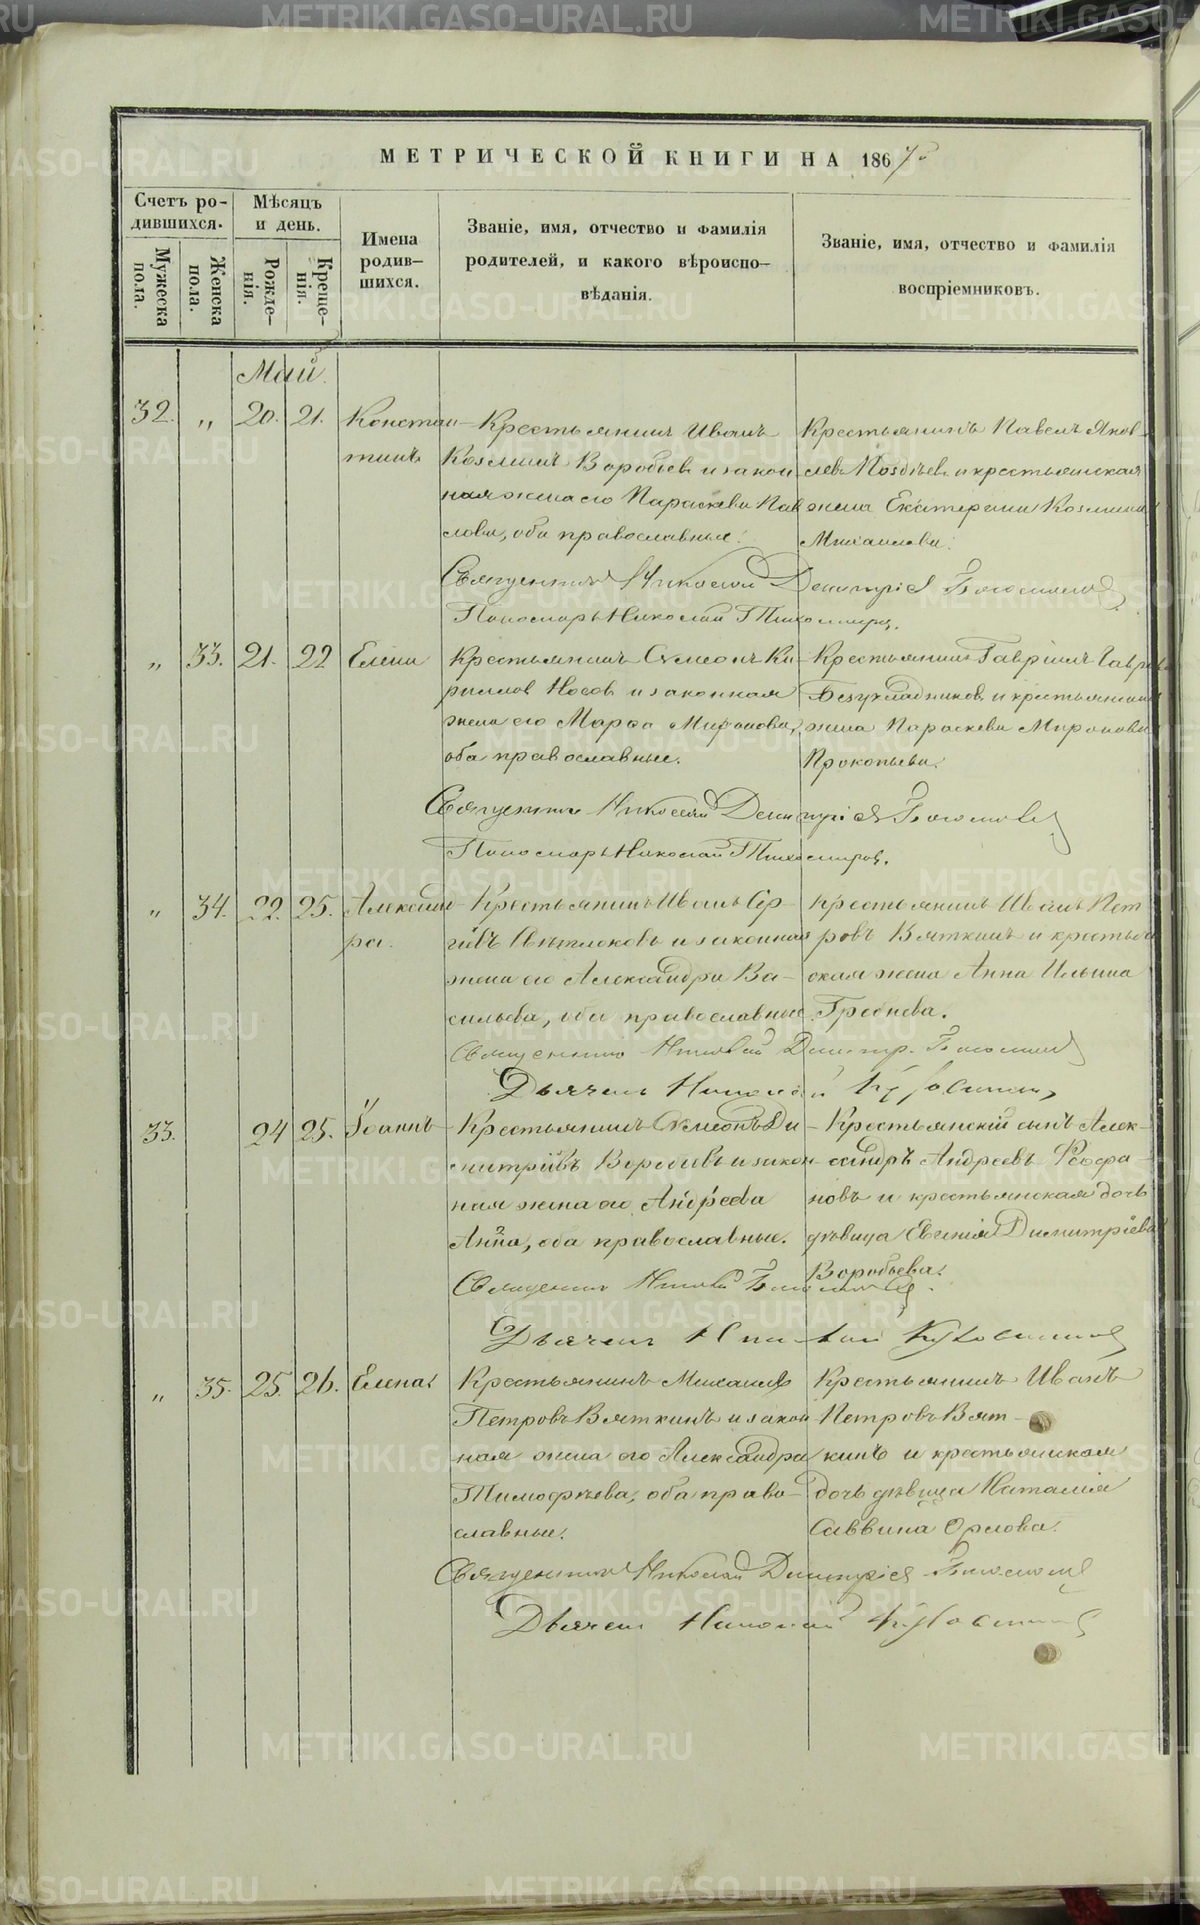 МЕТРИЧЕСКОЙ КНИГИ НА 186
Счетъ родившихся.
Мѣсяцъ и день.
Мужеска пола.
Женска пола.
Рожденія.
Крещенія.
Имена родившихся.
Званіе, имя, отчество и фамилія
родителей, и какого вѣроиспо-
вѣданія.
Званіе, имя, отчество и фамилія
воспріемниковъ.
Май.
32. „ 20. 21. Констан-
тинъ
Крестьянинъ Иванъ
Козминъ Воробьевъ и закон-
ная жена его Параскева Пав-
лова, оба православные.
Крестьянинъ Павелъ Яков-
левъ и крестьянская
жена Екатерина Козмина
Михаилова.
Священникъ Николай Димитріев
Пономарь Николай Тихомировъ.
„ 33. 21. 22 Елена
Крестьянинъ Симеонъ Ки-
рилловъ Носовъ и законная
жена его Марѳа Миронова,
оба православные.
Крестьянинъ Гавріилъ
Безукладниковъ и крестьянская
жена Параскева Миронова
Прокопьева.
Священникъ Николай Димитріев
Пономарь Николай Тихомировъ.
„ 34. 22. 25. Александ-
ра.
Крестьянинъ Иванъ Сер-
гіевъ Свѣтлоковъ и законная
жена его Александра Ва-
сильева, оба православные.
Крестьянинъ Иванъ Пет-
ровъ Вяткинъ и крестьян-
ская жена Анна Ильина
Гребнева.
Священникъ Николай Димитр.
Дьячекъ Николай
33. 24 25. Іоаннъ
Крестьянинъ Симеонъ Ди-
митріевъ Воробьевъ и закон-
ная жена его Андреева
Анна, оба православные.
Крестьянскій сынъ Алек-
сандръ Андреевъ Ѳеофа-
новъ и крестьянская дочь
дѣвица Евгенія Димитріева
Воробьева.
Священникъ Николай
Дьячекъ Николай
„ 35. 25. 26. Елена.
Крестьянинъ Михаилъ
Петровъ Вяткинъ и закон-
ная жена его Александра
Тимофѣева, оба право-
славные.
Крестьянинъ Иванъ
Петровъ Вят-
кинъ и крестьянская
дочь дѣвица Наталія
Саввина Орлова.
Священникъ Николай Димитріев
Дьячекъ Николай
METRIKI.GASO-URAL.RU